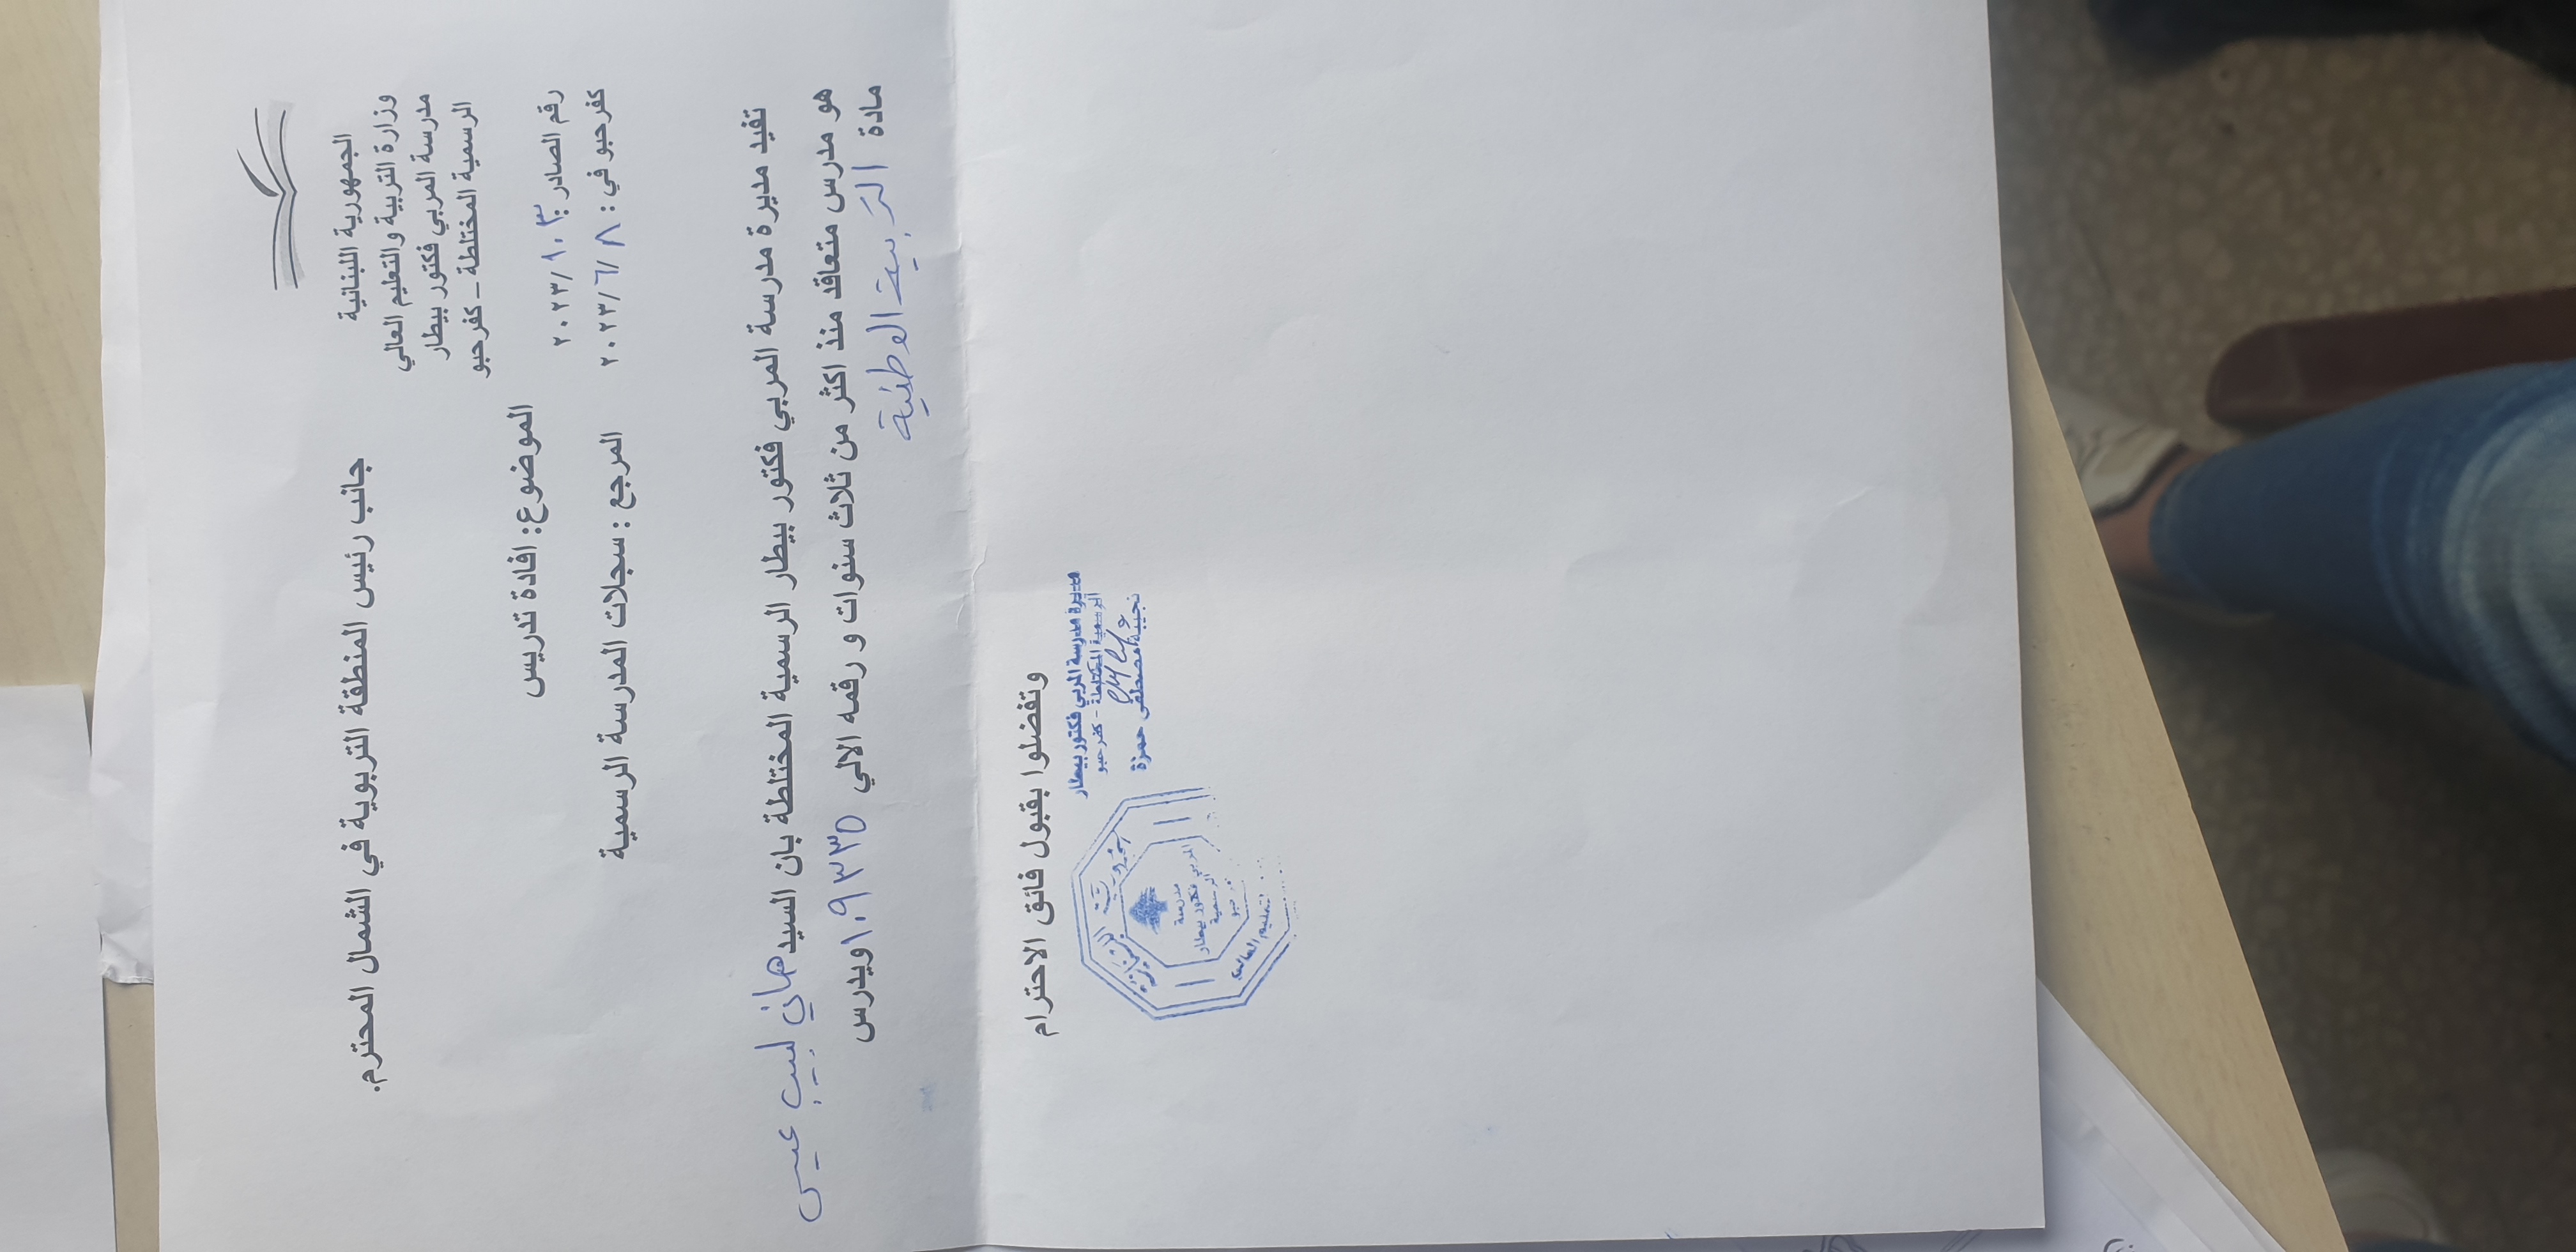 الجمهورية اللبنانية
وزارة التربية والتعليم العالي
مدرسة المربي فكتور بيطار
الرسمية المختلطة – كفرحبو
جانب رئيس المنطقة التربوية في الشمال المحترم.
رقم الصادر: ١٠٣/ ٢٠٢٣
كفرحبو في: ٨ /٦ /٢٠٢٣
الموضوع: افادة تدريس
المرجع : سجلات المدرسة الرسمية
تفيد مديرة مدرسة المربي فكتور بيطار الرسمية المختلطة بان السيد هاني لبيب عيسى
هو مدرس متعاقد منذ اكثر من ثلاث سنوات و رقمه الالي ١٠٩٣٣٥ ويدرس
مادة التربية الوطنية
وتفضلوا بقبول فائق الاحترام
مديرة مدرسة المربي فكتور بيطار
الرسمية المختلطة - كفرحبو
نجيبة مصطفى حمزة
الجمهورية اللبنانية
مدرسة
المربي فكتور بيطار
الرسمية
التعليم العالي